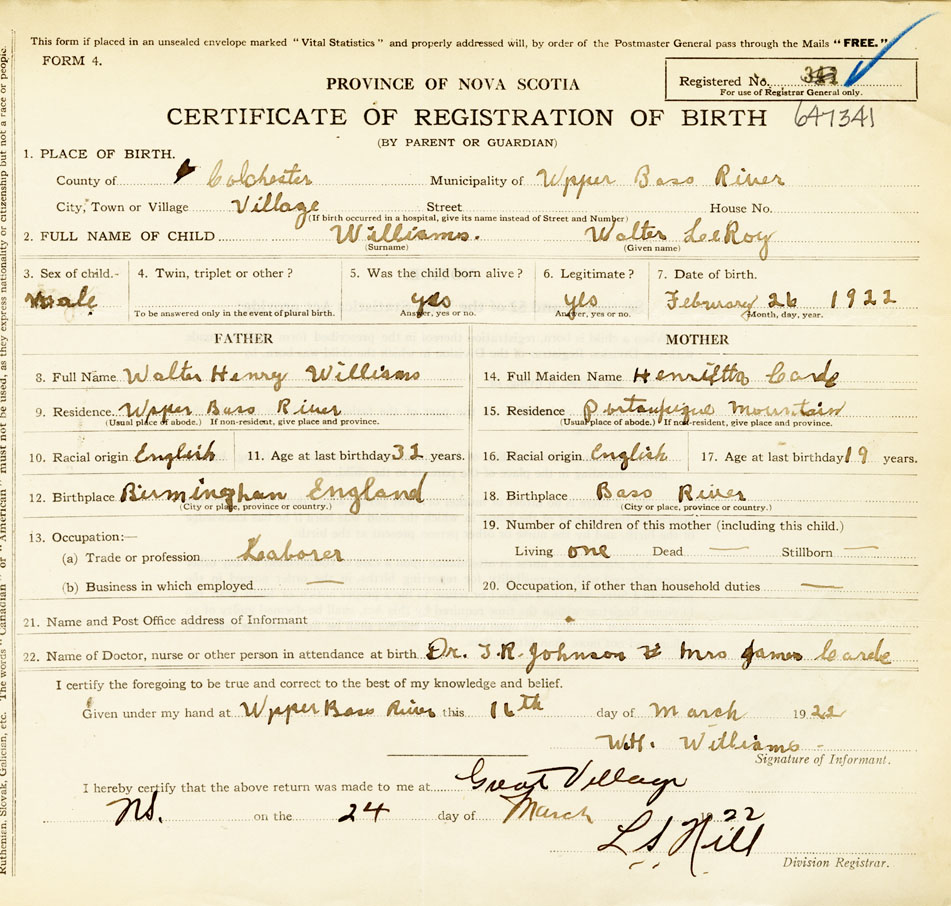 This form if placed in an unsealed envelope marked "Vital Statistics" and properly addressed will, by order of the Postmaster General pass through the Mails "FREE."
FORM 4.
Registered No.
For use of Registrar General only.
PROVINCE OF NOVA SCOTIA
647341
CERTIFICATE OF REGISTRATION OF BIRTH
(BY PARENT OR GUARDIAN)
1. PLACE OF BIRTH.
County of Colchester Municipality of Upper Bass River
City, Town or Village Village Street House No.
(If birth occurred in a hospital, give its name instead of Street and Number)
2. FULL NAME OF CHILD Williams. Walter LeRoy
(Surname) (Given name)
3. Sex of child.- 4. Twin, triplet or other? 5. Was the child born alive? 6. Legitimate? 7. Date of birth.
Male yes yes February 26 1922
To be answered only in the event of plural birth. Answer, yes or no. Answer, yes or no. Month, day, year.
FATHER MOTHER
8. Full Name Walter Henry Williams 14. Full Maiden Name Henrietta Carde
9. Residence. Upper Bass River 15. Residence Portaupique Mountain
(Usual place of abode.) If non-resident, give place and province. (Usual place of abode.) If non-resident, give place and province.
10. Racial origin English 11. Age at last birthday 32 years. 16. Racial origin English 17. Age at last birthday 19 years.
12. Birthplace Birminghan England 18. Birthplace Bass River
(City or place, province or country.) (City or place, province or country.)
13. Occupation:— 19. Number of children of this mother (including this child.)
(a) Trade or profession Laborer Living one Dead — Stillborn —
(b) Business in which employed — 20. Occupation, if other than household duties —
21. Name and Post Office address of Informant
22. Name of Doctor, nurse or other person in attendance at birth Dr. T.R. Johnson & Mrs James Carde
I certify the foregoing to be true and correct to the best of my knowledge and belief.
Given under my hand at Upper Bass River this 16th day of March 1922
W.H. Williams
Signature of Informant.
I hereby certify that the above return was made to me at Great Village
NS. on the 24 day of March 22
L S Hill
Division Registrar.
Ruthenian, Slovak, Galician, etc. The words "Canadian" or "American" must not be used, as they express nationality or citizenship but not a race or people.